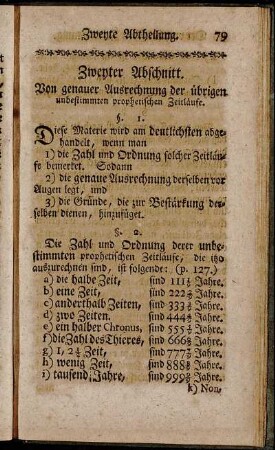 Zweyte Abtheilung. 79
Zweyter Abschnitt.
Von genauer Ausrechnung der übrigen
unbestimmten prophetischen Zeitläufe.
§. 1.
Diese Materie wird am deutlichsten abge-
handelt, wenn man
1) die Zahl und Ordnung solcher Zeitläu-
fe bemerket. Sodann
2) die genaue Ausrechnung derselben vor
Augen legt, und
3) die Gründe, die zur Bestärkung der-
selben dienen, hinzufüget.
§. 2.
Die Zahl und Ordnung derer unbe-
stimmten prophetischen Zeitläufe, die itzo
auszurechnen sind, ist folgender: (p. 127.)
a) die halbe Zeit, sind 111 1/9 Jahre.
b) eine Zeit, sind 222 2/9 Jahre.
c) anderthalb Zeiten, sind 333 3/9 Jahre.
d) zwo Zeiten. sind 444 4/9 Jahre.
e) ein halber Chronus, sind 555 5/9 Jahre.
f) die Zahl des Thieres, sind 666 6/9 Jahre.
g) 1, 2 1/2 Zeit, sind 777 7/9 Jahre.
h) wenig Zeit, sind 888 8/9 Jahre.
i) tausend Jahre, sind 999 9/9 Jahre.
k) Non-